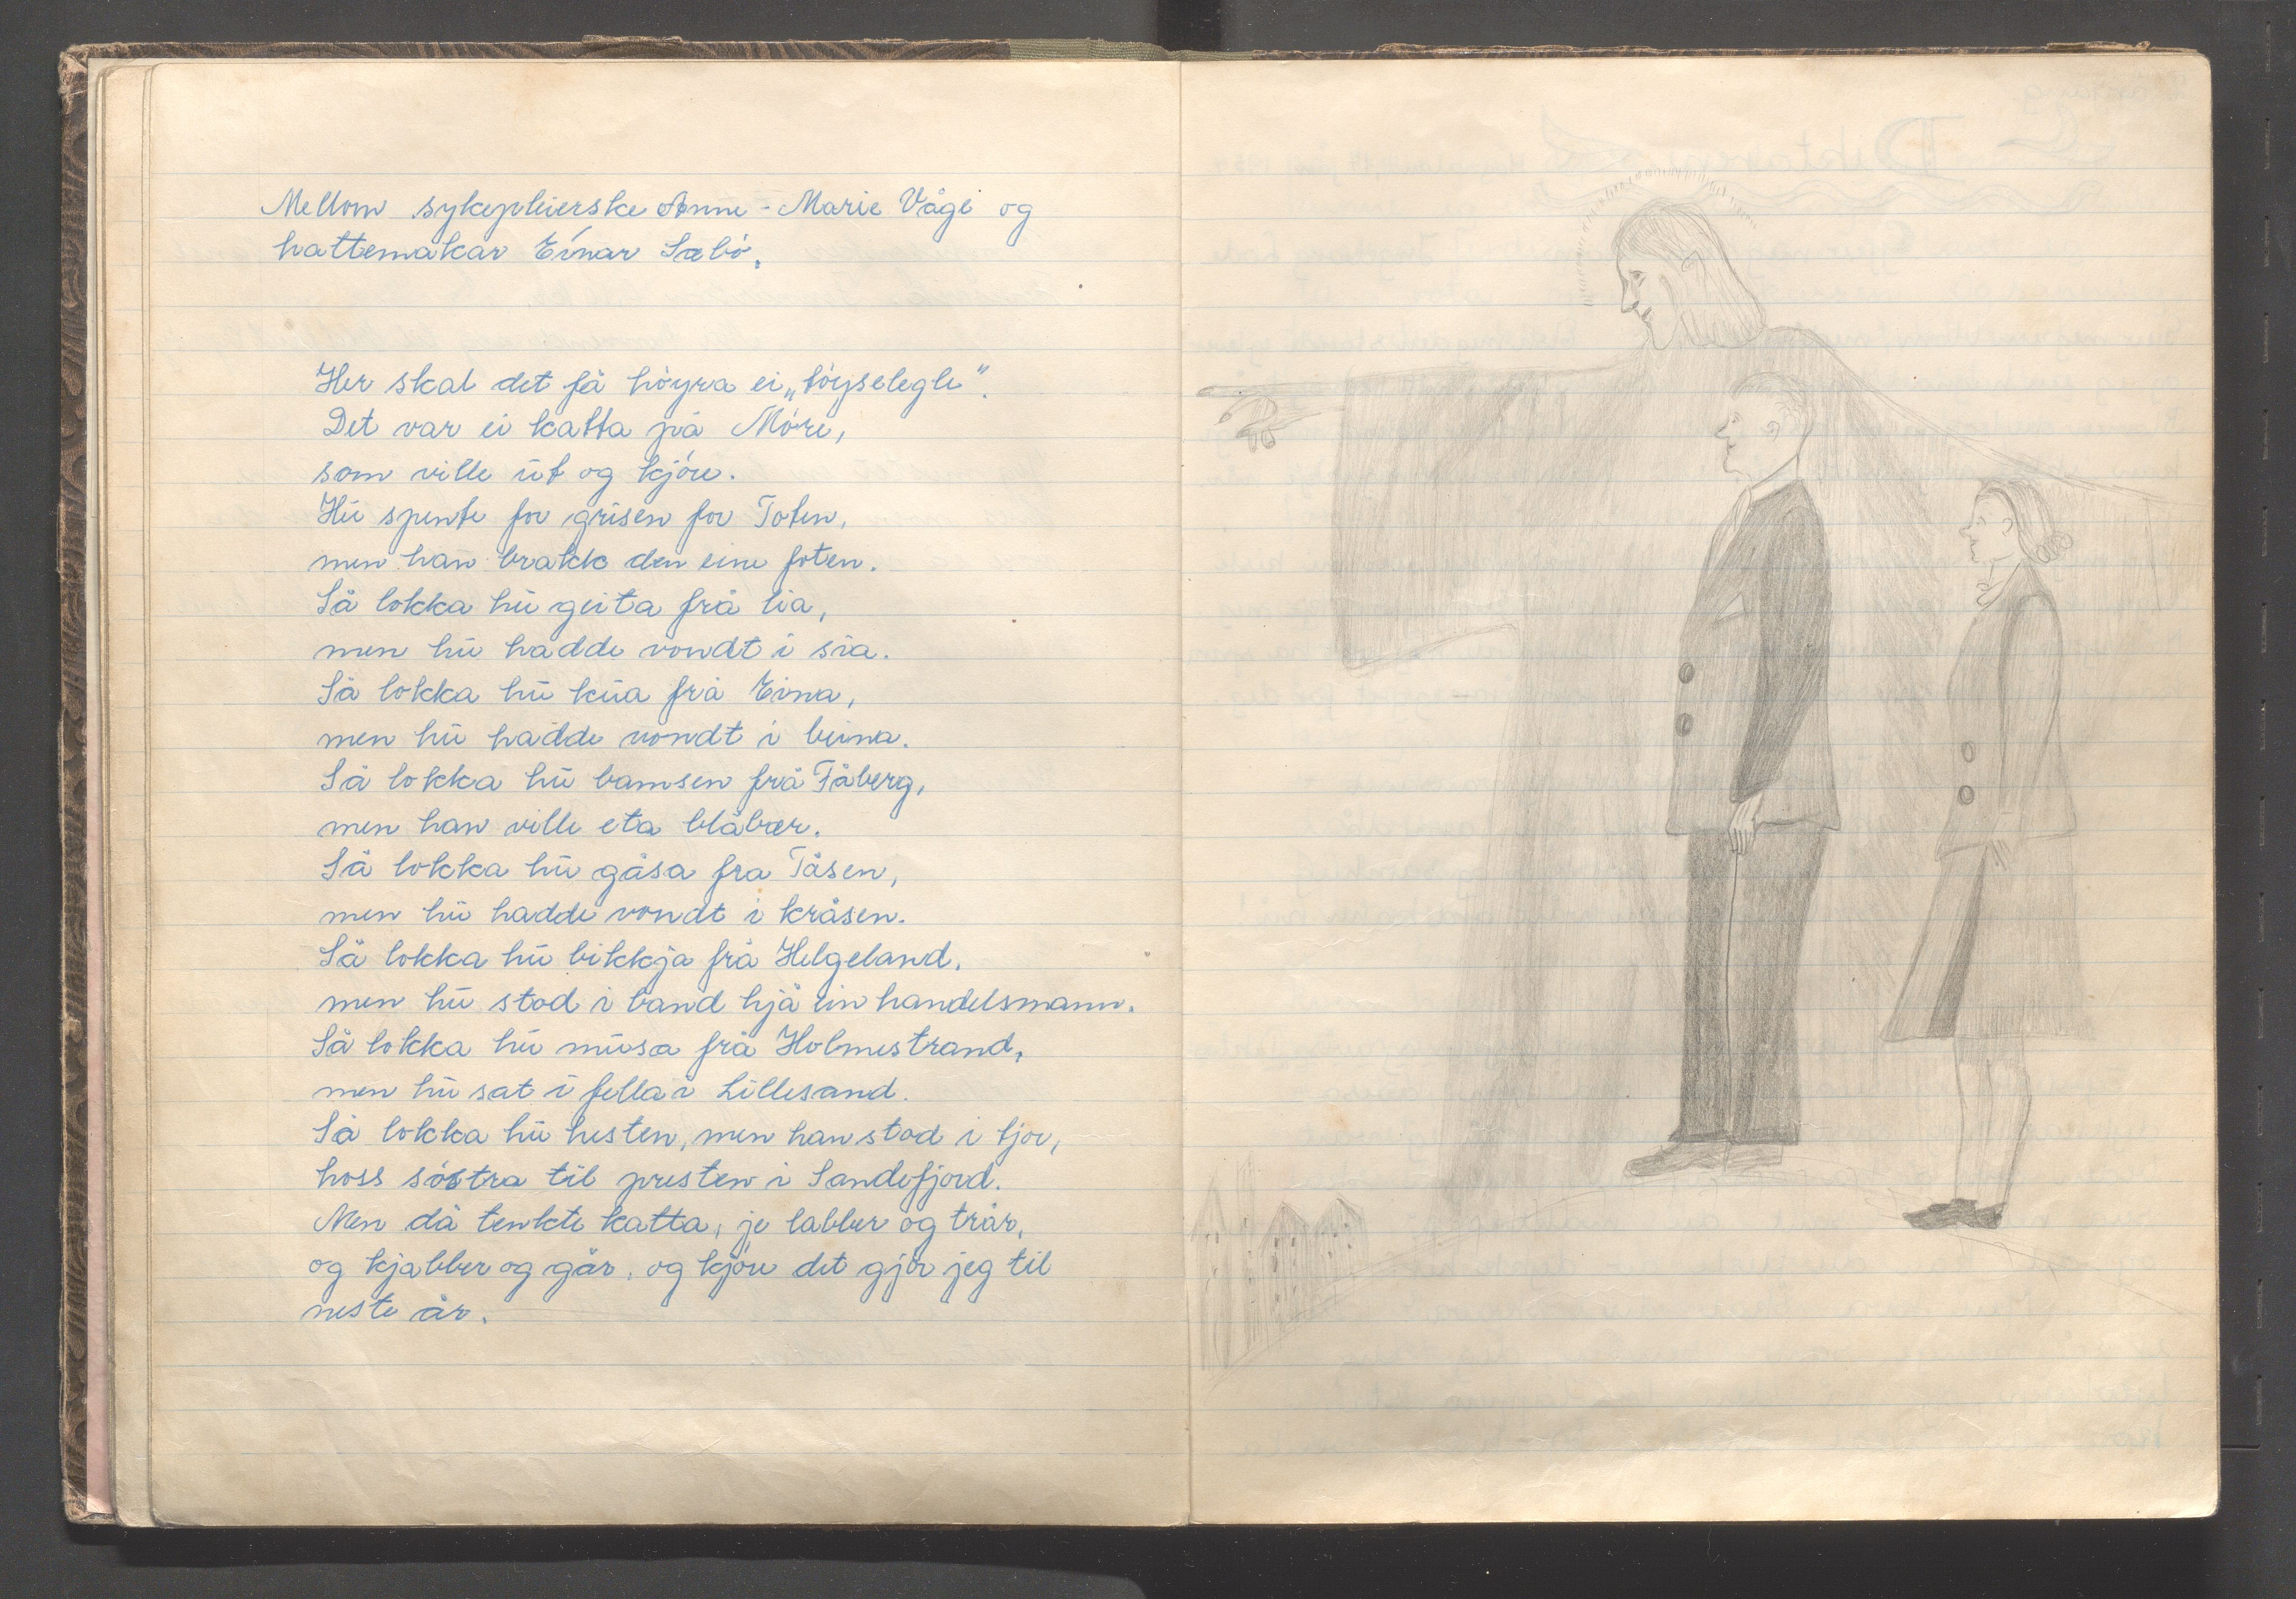 Mellom sykepleierske Anne-Marie Våge og
hattemakar Einar Sæbö.
Her skal det få höyra ei „töyselegle".
Det var ei katta på Möre,
som ville ut og kjöre.
Hu spente for grisen for Toten,
men han brakk den eine foten.
Så lokka hu geita frå lia,
men hu hadde vondt i sia.
Så lokka hu kua frå Eina,
men hu hadde vondt i beina.
Så lokka hu bamsen frå Fåberg,
men han ville eta blåbær.
Så lokka hu gåsa fra Tåsen,
men hu hadde vondt i kråsen.
Så lokka hu bikkja frå Helgeland,
men hu stod i band hjå ein handelsmann.
Så lokka hu musa frå Holmestrand,
men hu sat i fella i Lillesand.
Så lokka hu hesten, men han stod i tjor,
hoss söstra til presten i Sandefjord.
Men då tenkte katta, je labber og trår,
og kjabber og går, og kjöre det gjör jeg til
neste år.